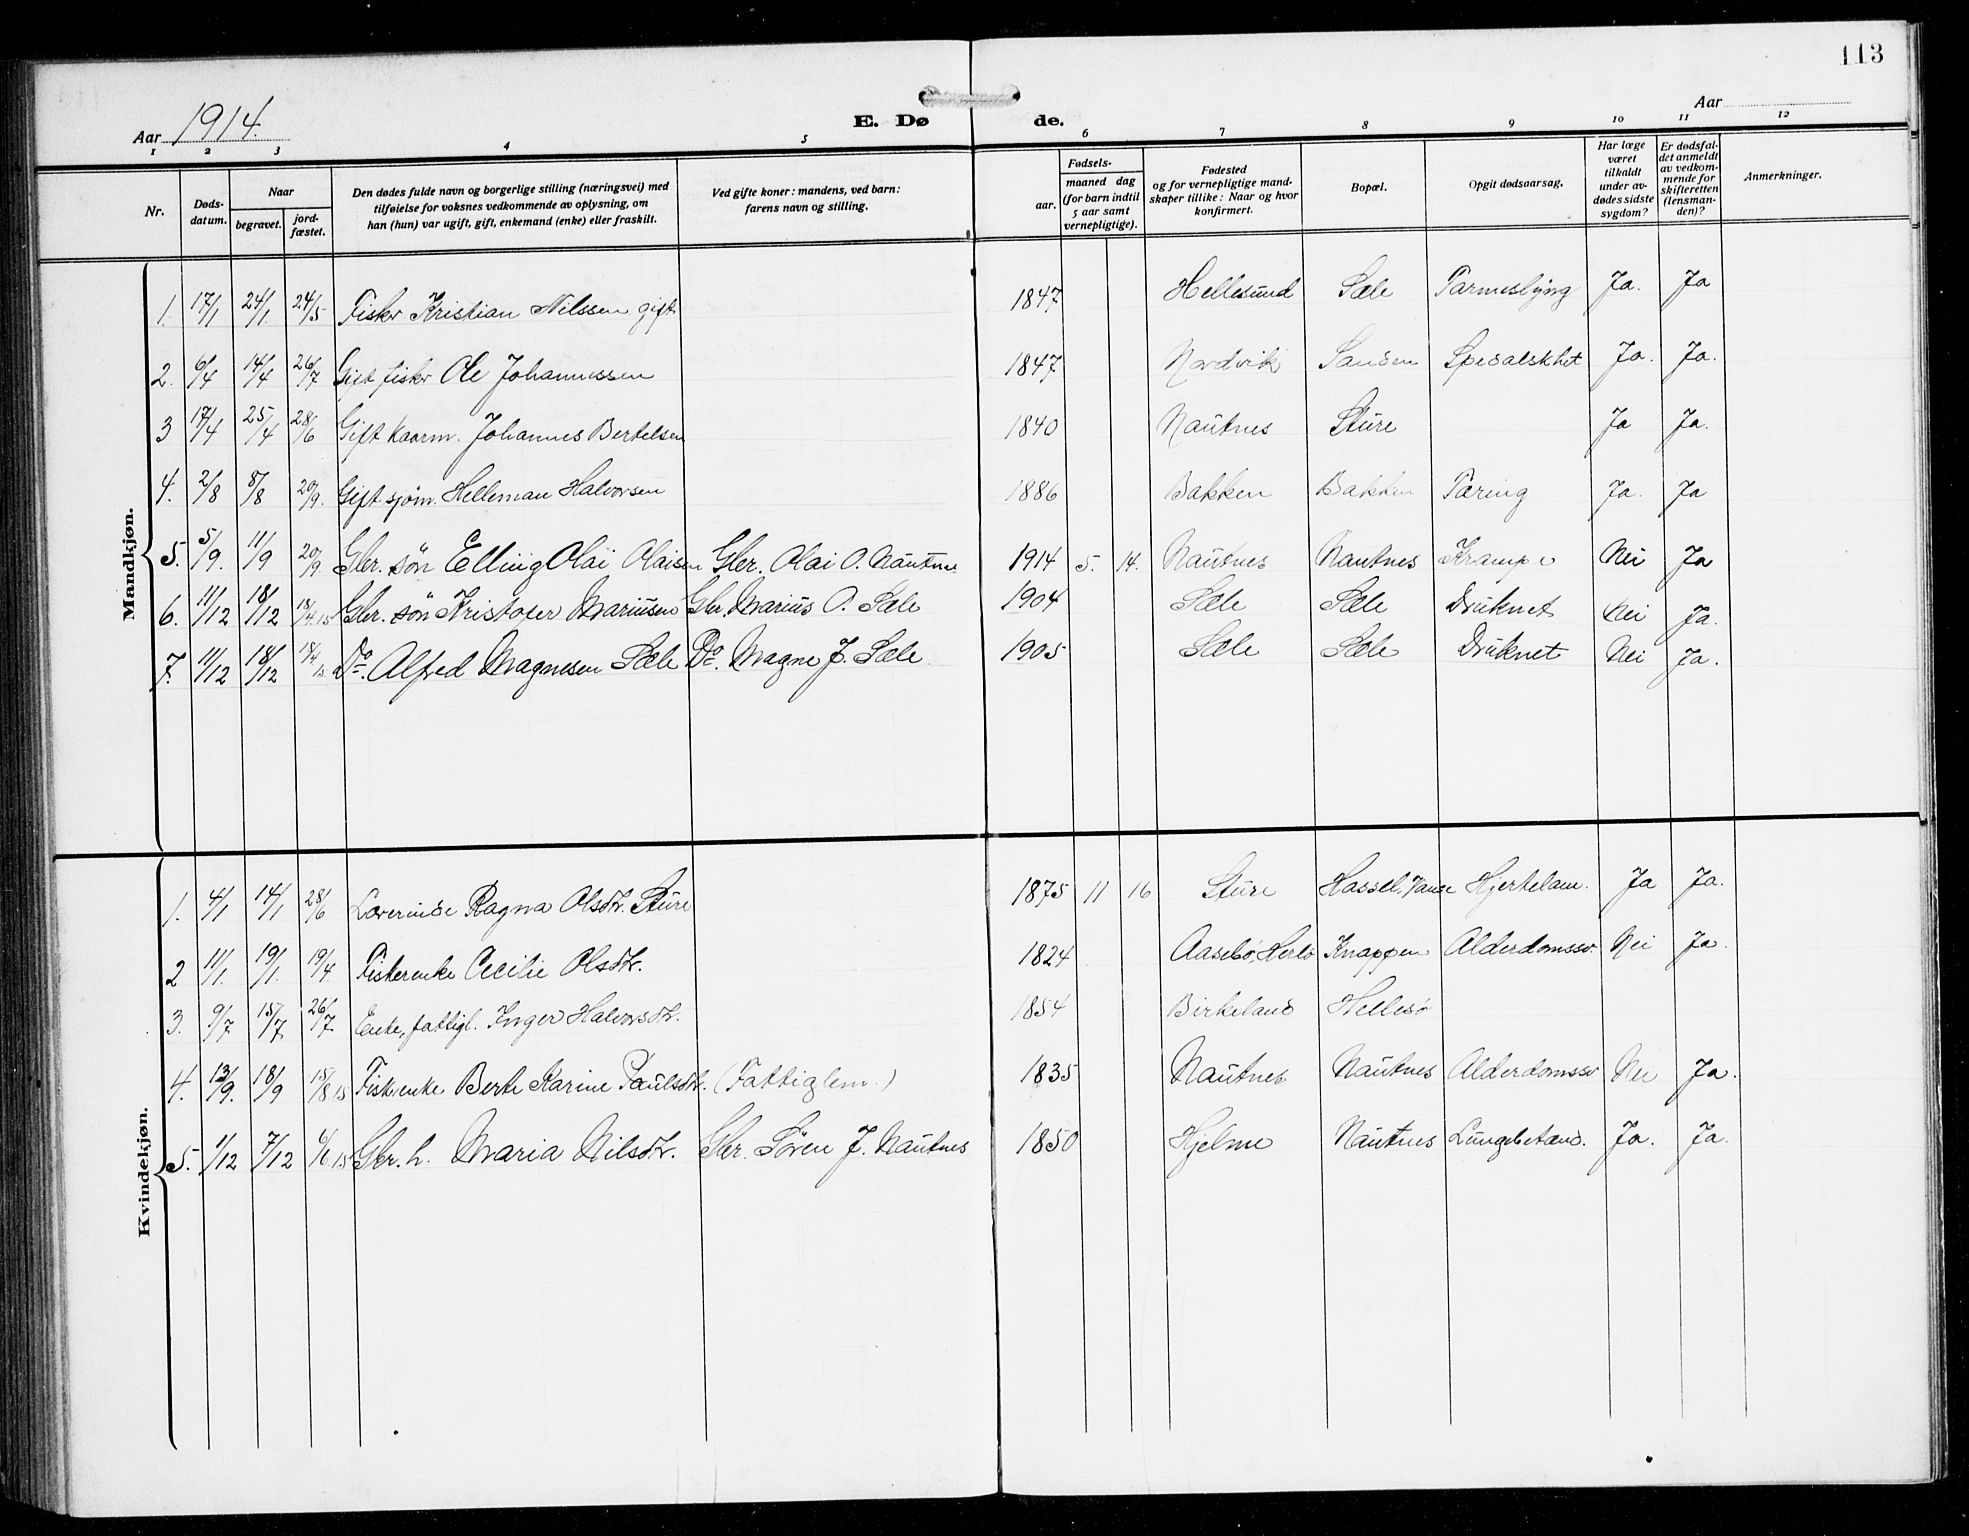 113
Aar 1914.
E. Døde.
Aar
1 2 3 4 5 6 7 8 9 10 11 12
Nr.
Døds-datum.
Naar
begravet.
jord-fæstet.
Den dødes fulde navn og borgerlige stilling (næringsvei) med
tilføielse for voksnes vedkommende av oplysning, om
han (hun) var ugift, gift, enkemand (enke) eller fraskilt.
Ved gifte koner: mandens, ved barn:
farens navn og stilling.
Fødsels-
aar.
maaned dag
(for barn indtil
5 aar samt
vernepligtige).
Fødested
og for vernepligtige mand-
skaper tillike: Naar og hvor
konfirmert.
Bopæl.
Opgit dødsaarsag.
Har læge
været
tilkaldt
under av-
dødes sidste
sygdom?
Er dødsfal-
det anmeldt
av vedkom-
mende for
skifteretten
(lensman-
den)?
Anmerkninger.
Mandkjøn.
1. 17/1 24/1. 24/5 Fisker Kristian Nilssen gift 1847 Hellesund Sæle Tarmeslyng Ja. Ja
2. 6/4 14/4 26/7 Gift fisker Ole Johannessen 1847 Nordvik Sanden Spedalskhet Ja. Ja.
3 17/4 25/4 28/6 Gift kaarm. Johannes Bertelsen 1840 Nautnes Sture Ja Ja.
4. 2/8 8/8 20/9. Gift sjøm. Helleman Halvorsen 1886 Bakken Bakken Tæring Ja. Ja
5. 5/9. 11/9 20/9. Gbr. søn Elling Olai Olaisen Gbr. Olai O. Nautnes 1914 5. 14. Nautnes Nautnes Krampe Nei Ja
6. 11/12 18/12 18/4.15 Gbr. søn Kristofer Mariusen Gbr. Marius O. Sæle 1904 Sæle Sæle Druknet Nei Ja.
7. 11/12 18/12 18/4 15. Do. Alfred Magnesen Sæle Do. Magne J. Sæle 1905 Sæle Sæle Druknet Nei Ja.
Kvindekjøn.
1. 4/1 14/1 28/6 Lærerinde Ragna Olsdtr. Sture 1875 11 16 Sture Hassel, Vanse Hjertelam. Ja Ja.
2 11/1. 19/1. 19/4. Fiskerenke Cecilie Olsdtr. 1824 Aasebø, Herlø Knappen Alderdomssv. Nei Ja.
3. 9/7 15/7 26/7. Enke, fattigl. Inger Halvorsdtr. 1854 Birkeland Hellesø
4. 13/9. 18/9 15/8 15 Fiskerenke Berte Karine Paulsdtr. (Fattiglem.) 1835 Nautnes Nautnes Alderdomssv Nei Ja.
5. 1/12 7/12 6/6 15 Gbr. h. Maria Nilsdtr. Gbr. Søren J. Nautnes 1850 Hjelme Nautnes Lungebetænd. Ja. Ja.